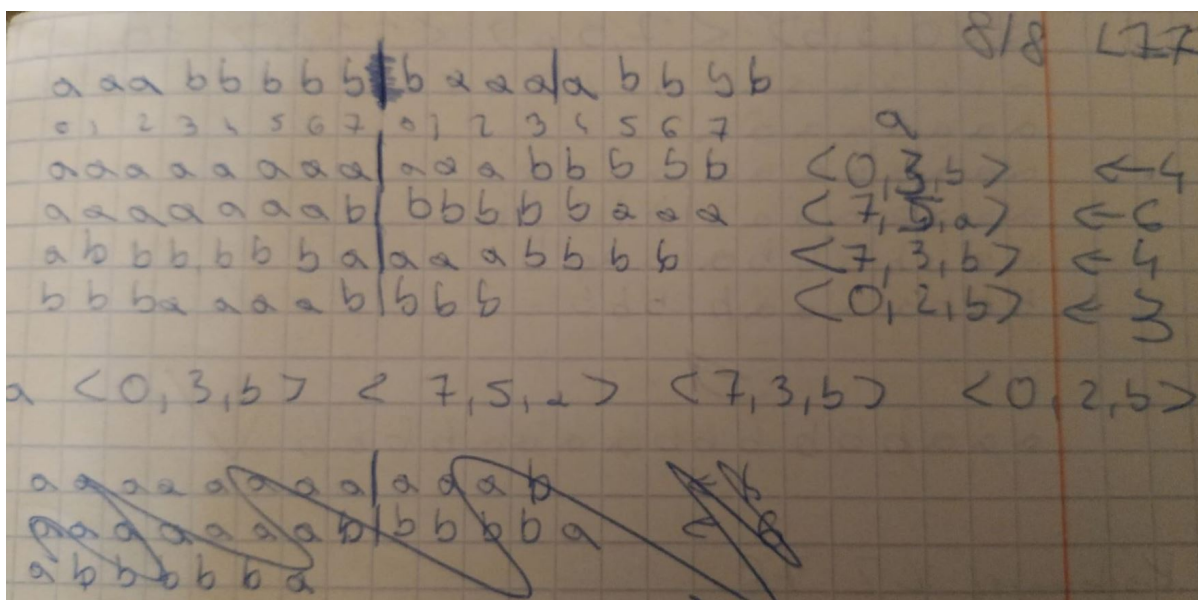 8/8 LZ77
a a a b b b b b b a a a | a b b b b
0 1 2 3 4 5 6 7 0 1 2 3 4 5 6 7 a
a a a a a a a a | a a a b b b b b <0,3,b> ← 4
a a a a a a a b | b b b b b a a a <7,5,a> ← 6
a b b b b b b a | a a a b b b b <7,3,b> ← 4
b b b a a a a b | b b b <0,2,b> ← 3
a <0,3,b> <7,5,a> <7,3,b> <0,2,b>
a a a a a a a a | a a a b
a a a a a a a b | b b b b a
a b b b b b a